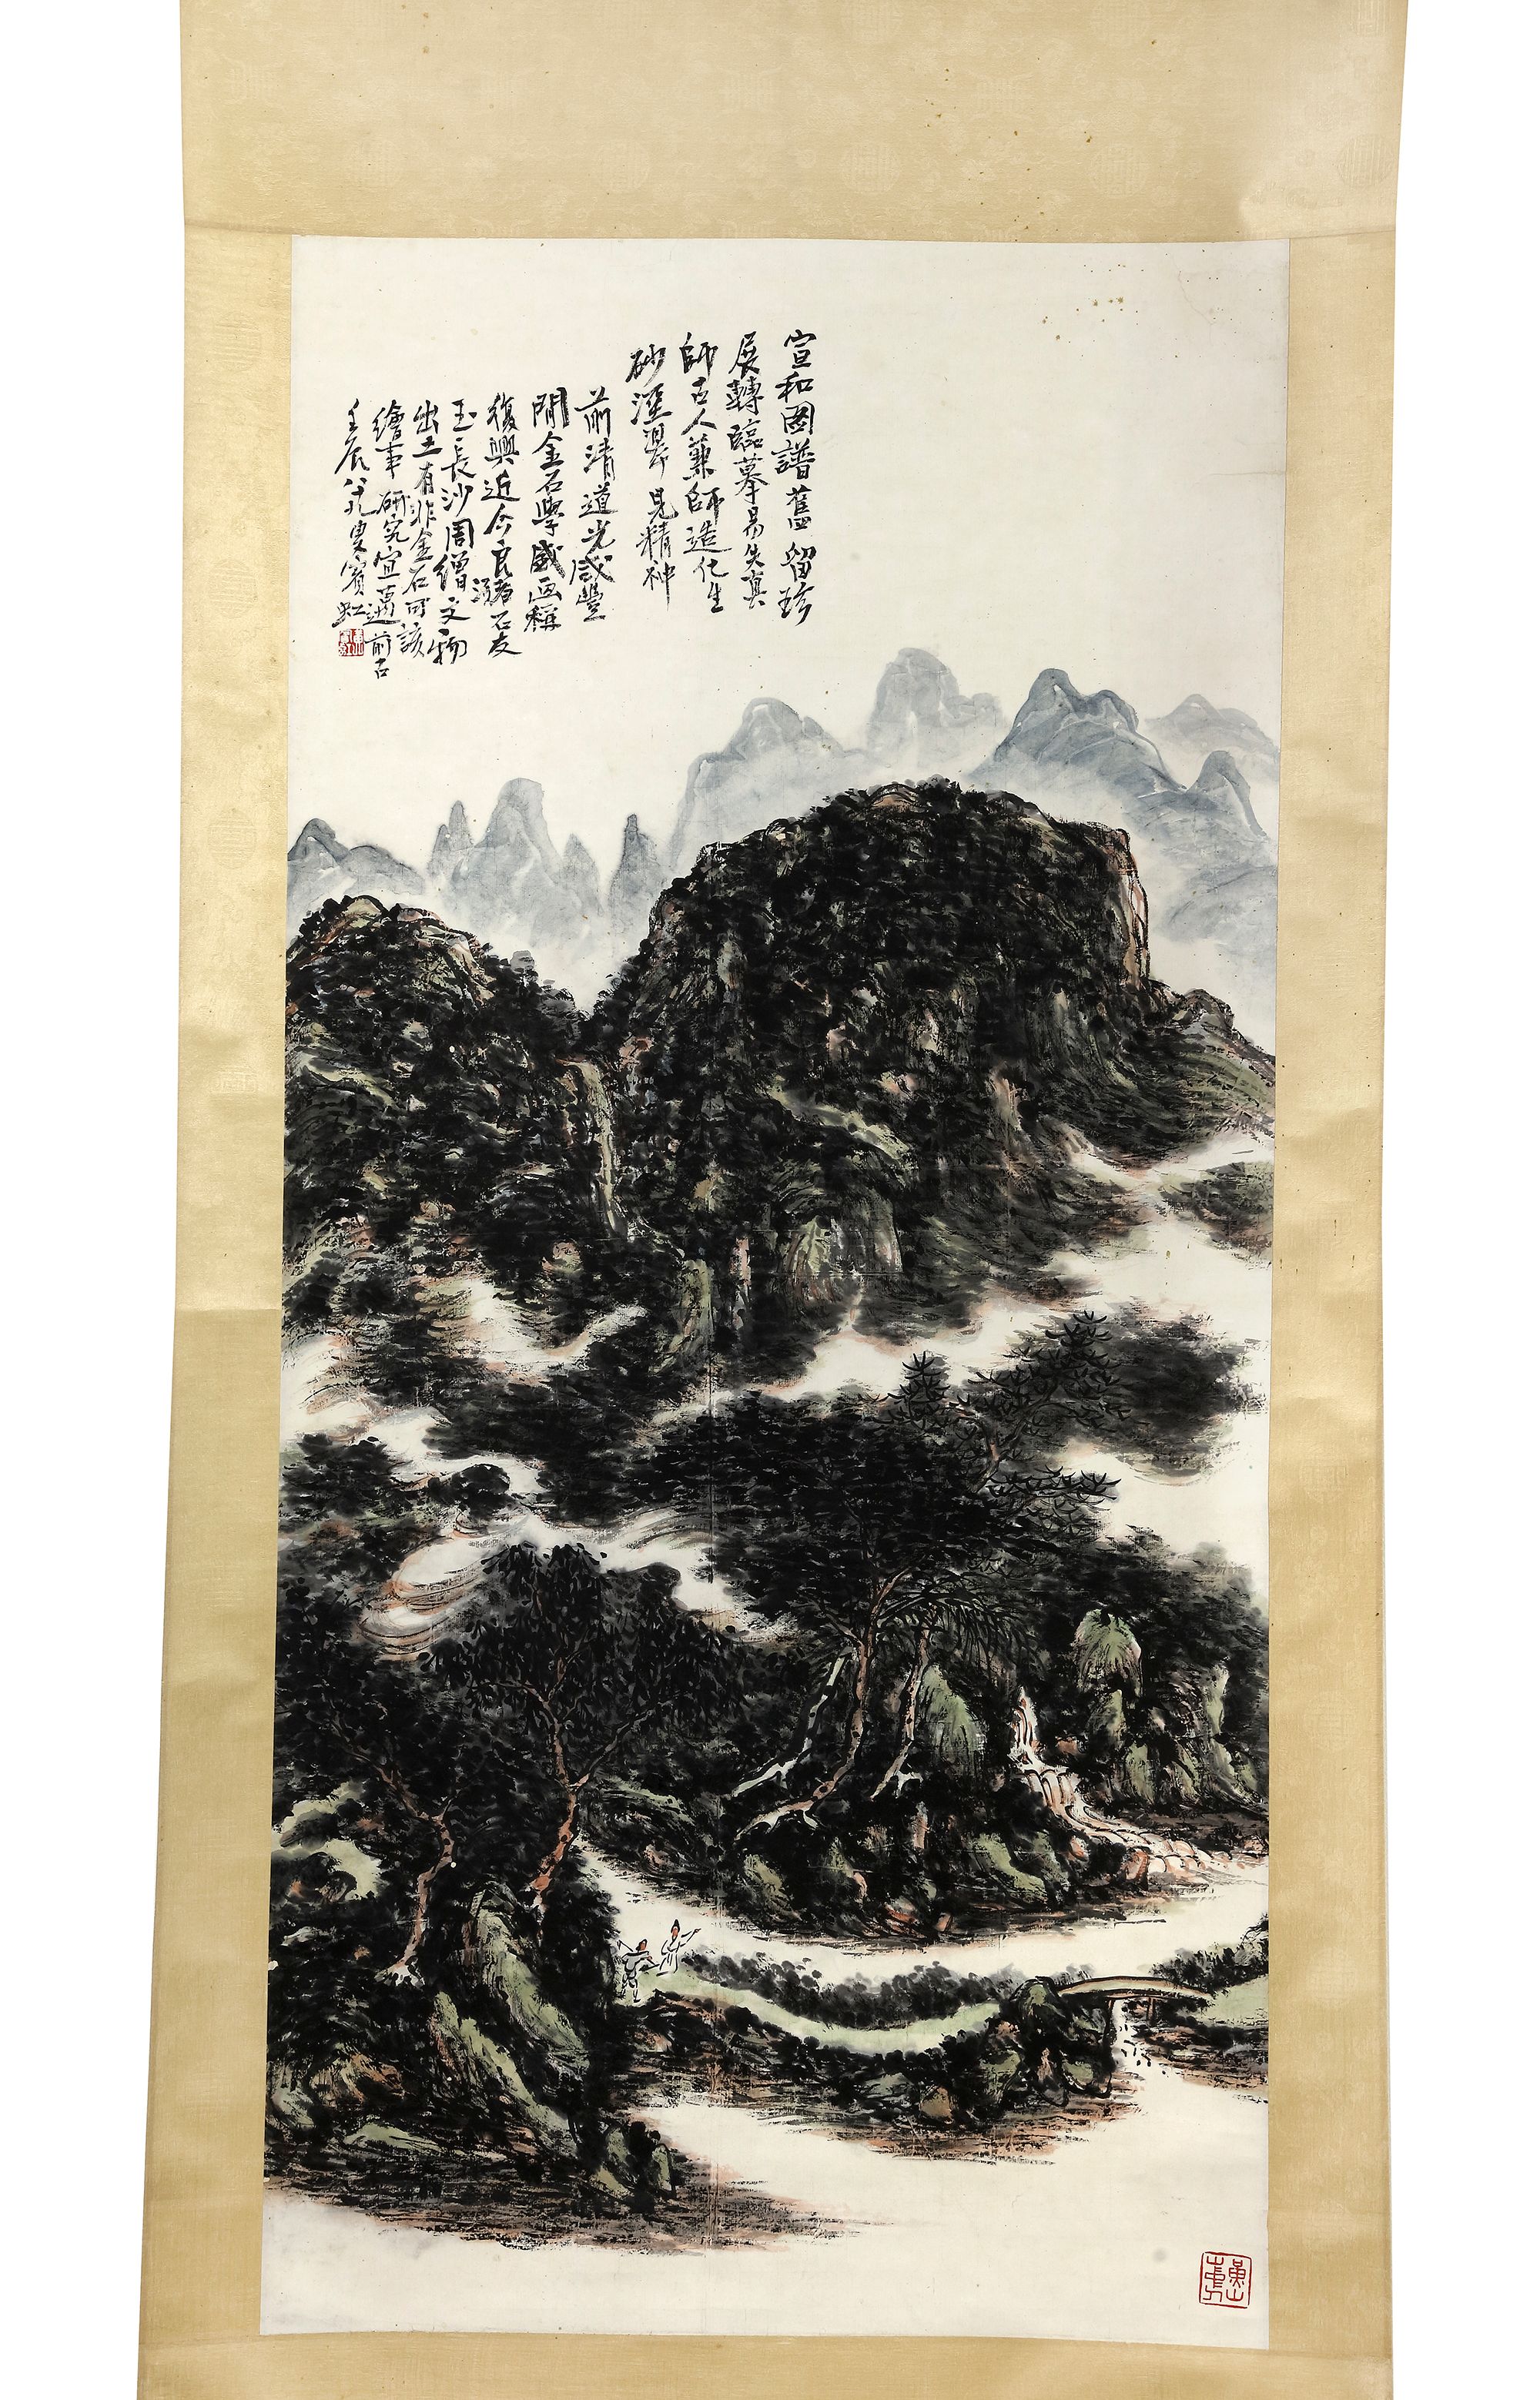 宣和圖譜舊留珍
展轉臨摹易失真
師古人兼師造化生
砂涇渠見精神
前清道光咸豐
間金石學盛画稱
復興近今良渚石友
玉長沙周繒文物
出土有非金石可該
繪事研究宜邁前古
壬辰八十九叟賓虹
黃山